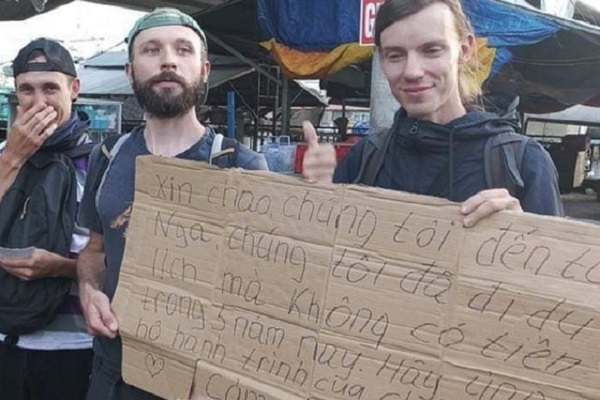 Xin chao, chúng tôi đến
Nga, chúng tôi đã đi du
lịch mà không có tiền
trong 5 năm nay. Hãy
hộ hành trình của
Cảm